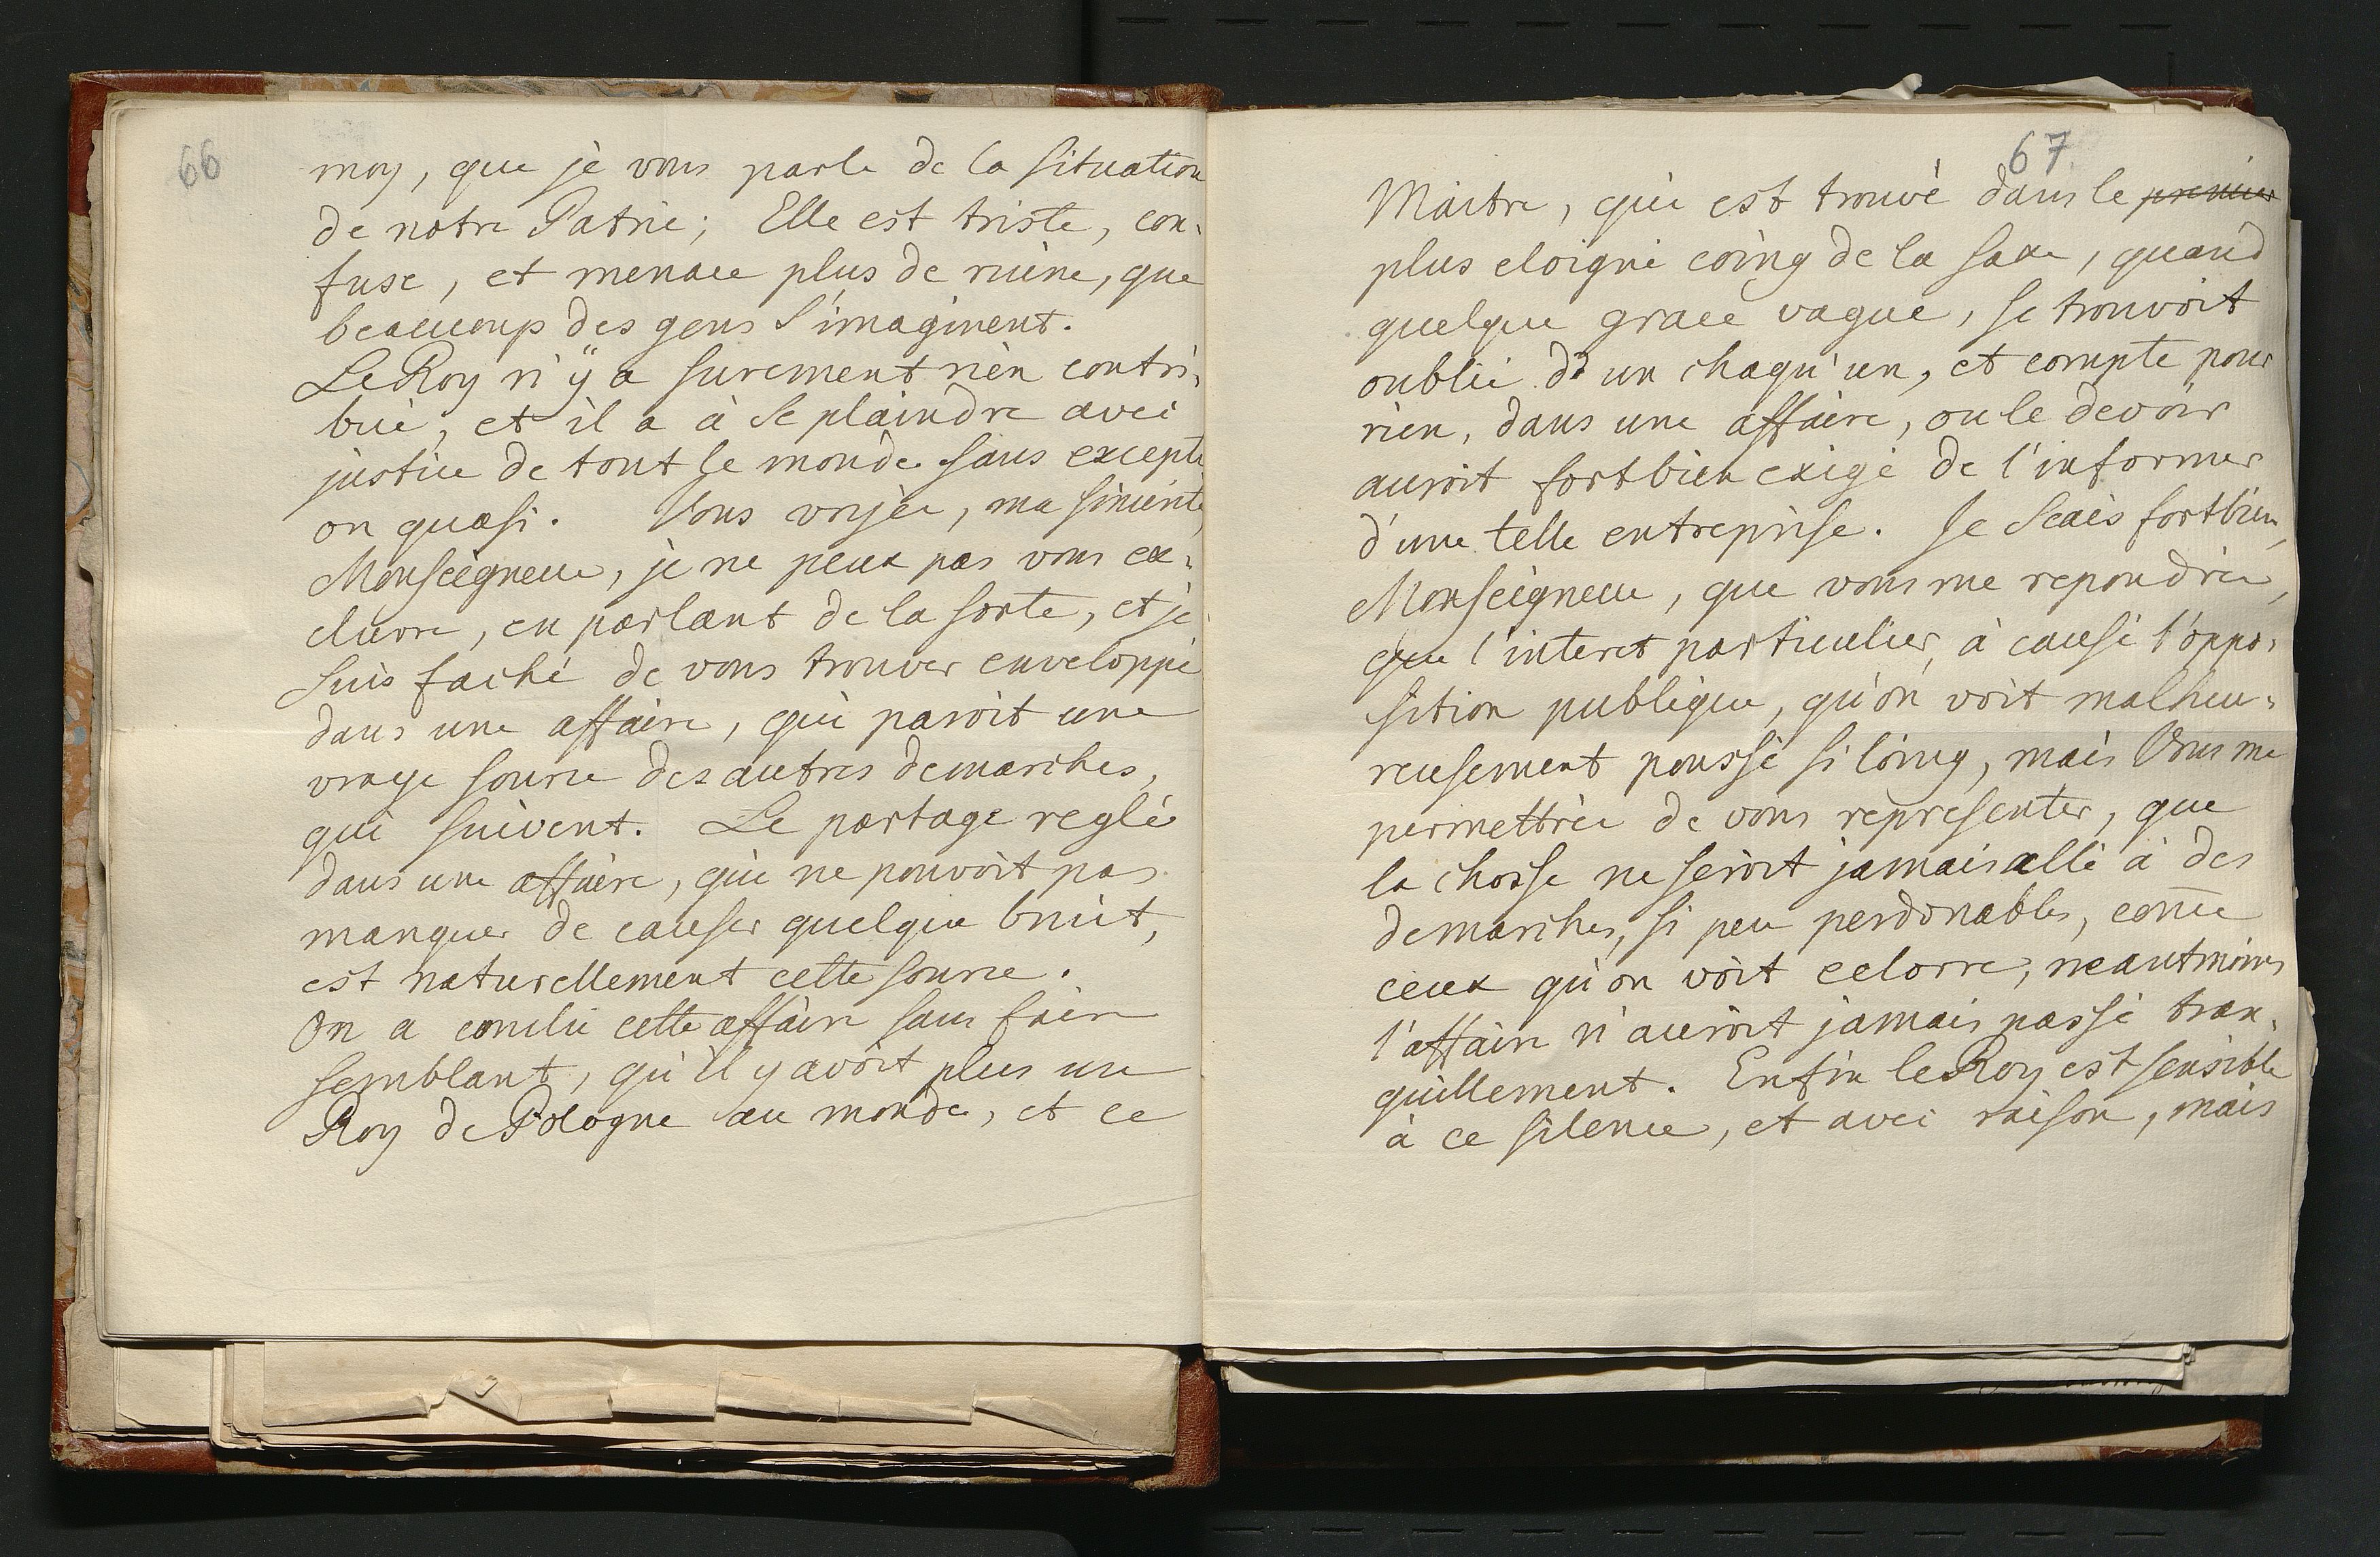 66
moy, que jè vous parle de la situation
de notre Patrie; Elle est triste, con-
fuse, et menace plus de ruine, que
beaucoup des gens s'imaginent.
Le Roy n'ÿ a surement rièn contri-
bué, et il a à se plaindre avec
justice de tout le monde sans excepti
on quasi. Vous voyéz, ma sincerité,
Monseigneur, je ne peux pas vous ex-
clurre, en parlant de la sorte, et je
suis faché de vous trouver enveloppé
dans une affaire, qui paroit une
vraye source des autres demarches,
qui suivent. Le partage reglé
dans une affaire, qui ne pouvoit pas
manquer de causer quelque bruit,
est naturellement cette source.
On a conclu cette affaire sans fair
semblant, qu'il y avoit plus un
Roy de Pologne au monde, et ce
67
Maitre, qui est trouvé dans le premier
plus eloigné coing de la Saxe, quand
quelque grace vague, se trouvoit
oublié d'un chaqu'un, et compté pour
rien, dans une affaire, ou le devoir
auroit fort bien exigé de l'informer
d'une telle entreprise. Je Scais fort bien,
Monseigneur, que vous me repondréz,
que l'interet particulier, à causé l'oppo-
sition publique, qu'on voit malheu-
reusement poussé si loing, mais Vous me
permettréz de vous representer, que
la chosse ne seroit jamais allé à des
demarches, si peu perdonables, come
ceux qu'on voit eclorre, neautmoins
l'affaire n'auroit jamais passé tran-
quillement. Enfin le Roy est sensible
à ce silence, et avec raison, mais